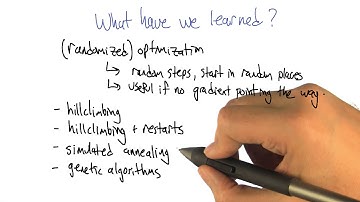 What have we learned?
(randomized) optimization
↳ random steps, start in random places
↳ useful if no gradient pointing the way.
- hillclimbing
- hillclimbing + restarts
- simulated annealing
- genetic algorithms